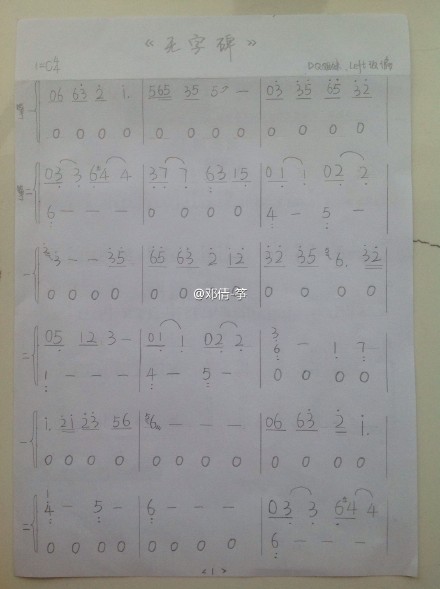 《无字碑》
1=C 4/4
筝一 06 63 2 1. | 565 35 5 - | 03 35 65 32
0 0 0 0 | 0 0 0 0 | 0 0 0 0
筝二 03 3 6#4 4 | 37 7 63 15 | 01 1 02 2
6 - - - | 0 0 0 0 | 4 - 5 -
一 3 - - 35 | 65 63 2 12 | 32 35 6. 32
0 0 0 0 | 0 0 0 0 | 0 0 0 0
@邓倩-筝
二 05 12 3 - | 01 1 02 2 | 3 6 - 1 7
1 - - - | 4 - 5 - | 0 0 0 0
一 1. 21 23 56 | 6 - - - | 06 63 2 1.
0 0 0 0 | 0 0 0 0 | 0 0 0 0
二 1 4 - 5 - | 6 - - - | 03 3 6#4 4
0 0 0 0 | 0 0 0 0 | 6 - - -
<1.>